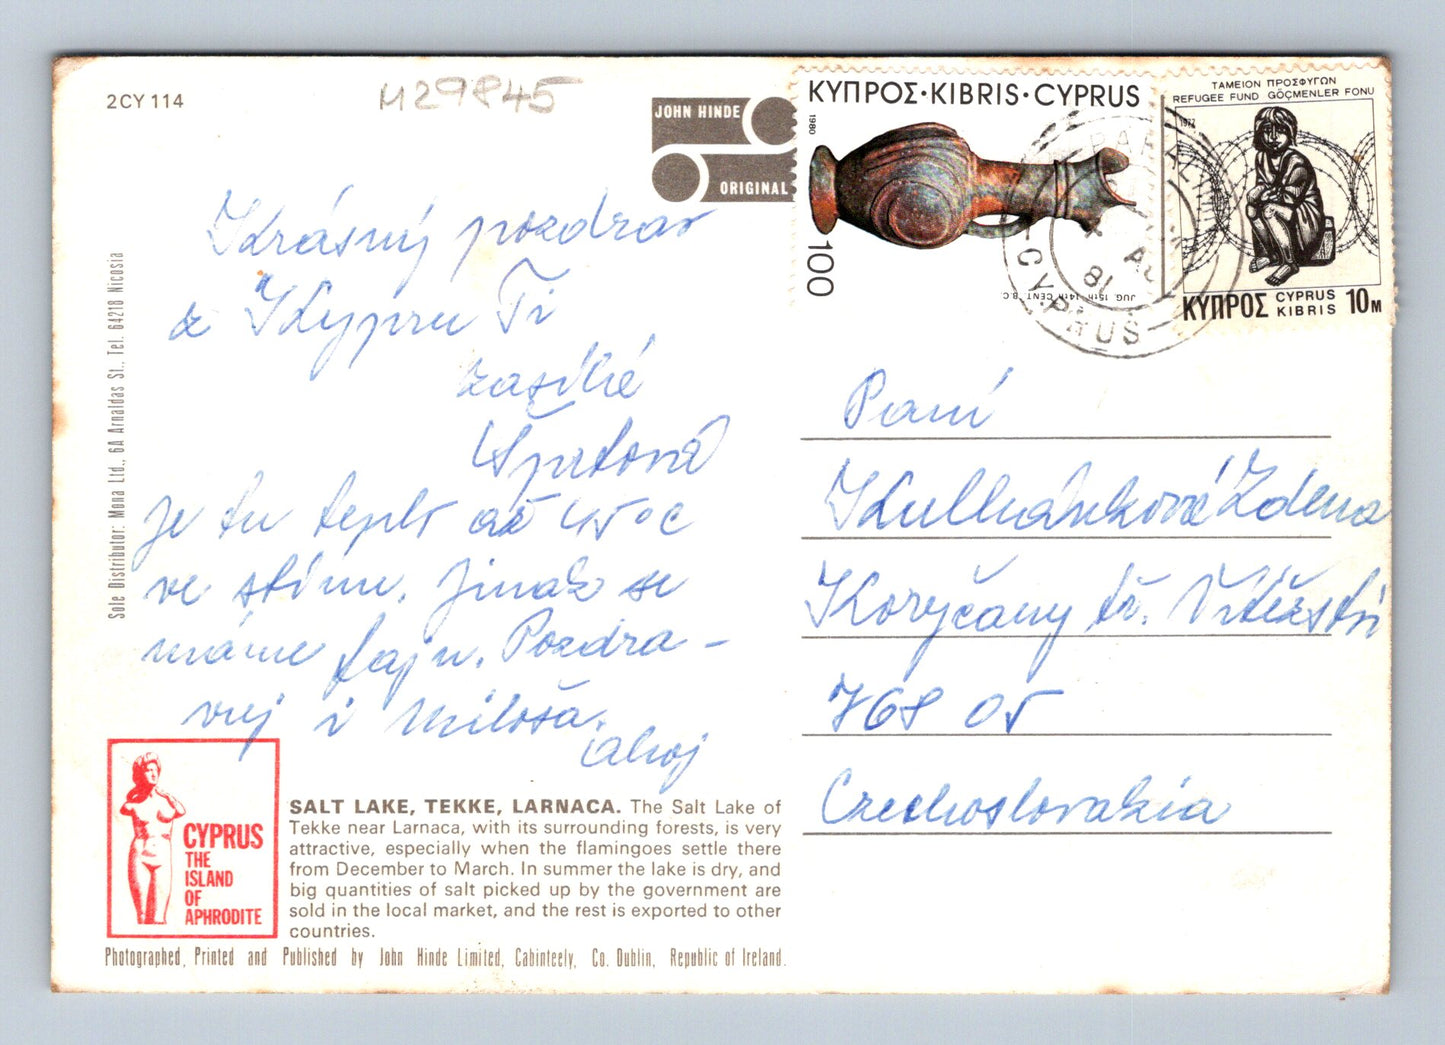 2CY 114
M29845
JOHN HINDE
ORIGINAL
ΚΥΠΡΟΣ·KIBRIS·CYPRUS
1980
100
JUG 15th-14th CENT. B.C.
ΤΑΜΕΙΟΝ ΠΡΟΣΦΥΓΩΝ
REFUGEE FUND GÖÇMENLER FONU
ΚΥΠΡΟΣ CYPRUS KIBRIS 10M
AU
81
CYPRUS
Krásný pozdrav
z Kypru Ti
zasílá
Šprtová
je tu teplo až 45°C
ve stínu. Jinak se
máme fajn. Pozdra-
vuj i Miloša.
Ahoj
Paní
Kulhánková Zdena
Koryčany tř. Vítězství
768 05
Czechoslovakia
Sole Distributor: Mona Ltd., 6A Arnaldas St., Tel. 64218 Nicosia
CYPRUS
THE
ISLAND
OF
APHRODITE
SALT LAKE, TEKKE, LARNACA. The Salt Lake of
Tekke near Larnaca, with its surrounding forests, is very
attractive, especially when the flamingoes settle there
from December to March. In summer the lake is dry, and
big quantities of salt picked up by the government are
sold in the local market, and the rest is exported to other
countries.
Photographed, Printed and Published by John Hinde Limited, Cabinteely, Co. Dublin, Republic of Ireland.